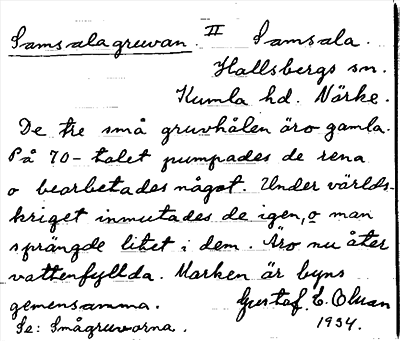 Samsalagruvan. II Samsala.
Hallsbergs sn.
Kumla hd. Närke.
De tre små gruvhålen äro gamla.
På 70-talet pumpades de rena
o bearbetades något. Under världs-
kriget inmutades de igen, o man
sprängde litet i dem. Äro nu åter
vattenfyllda. Marken är byns
gemensamma. Gustaf. E. Olsson
Se: Smågruvorna. 1934.